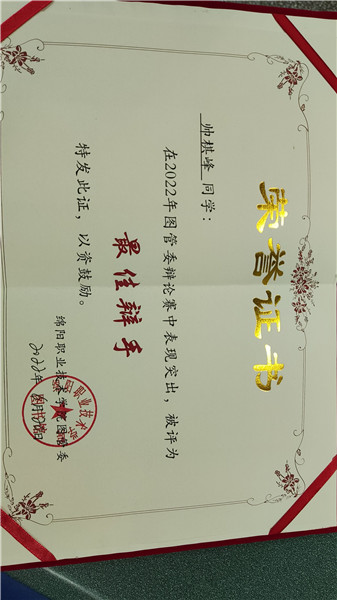 荣誉证书
帅棋峰 同学：
在2022年图管委辩论赛中表现突出，被评为
最佳辩手
特发此证，以资鼓励。
绵阳职业技术学院图管委